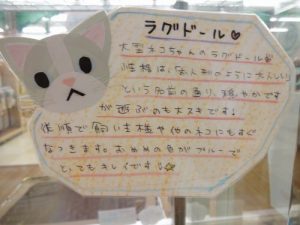 ラグドール♥
大型ネコちゃんのラグドール
性格は、ぬいぐるみ人形のように大人しい
という名前の通り、穏やかです
が遊ぶのも大スキです!
従順で飼い主様や他のネコにもすぐ
なつきます。おめめの色がブルーで
とってもキレイです!☆